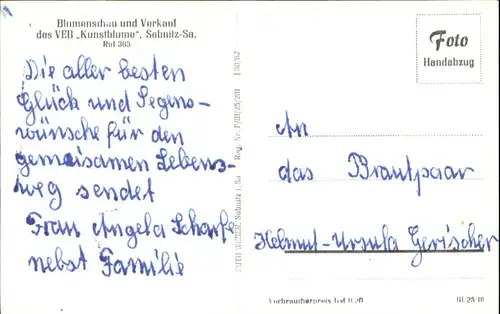 Blumenschau und Verkauf
des VEB „Kunstblume“, Sebnitz-Sa.
Ruf 365
Die aller besten
Glück und Segens-
wünsche für den
gemeisamen Lebens-
weg sendet
Frau Angela Scharfe
nebst Familie
Foto
Handabzug
An
das Brautpaar
Helmut-Ursula Gerischer
Verbraucherpreis